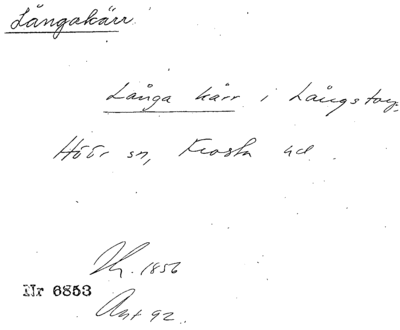 Långakärr
Långa kärr i Långstorp,
Höör sn, Frosta hd
1856
Nr 6853
Ant 92.